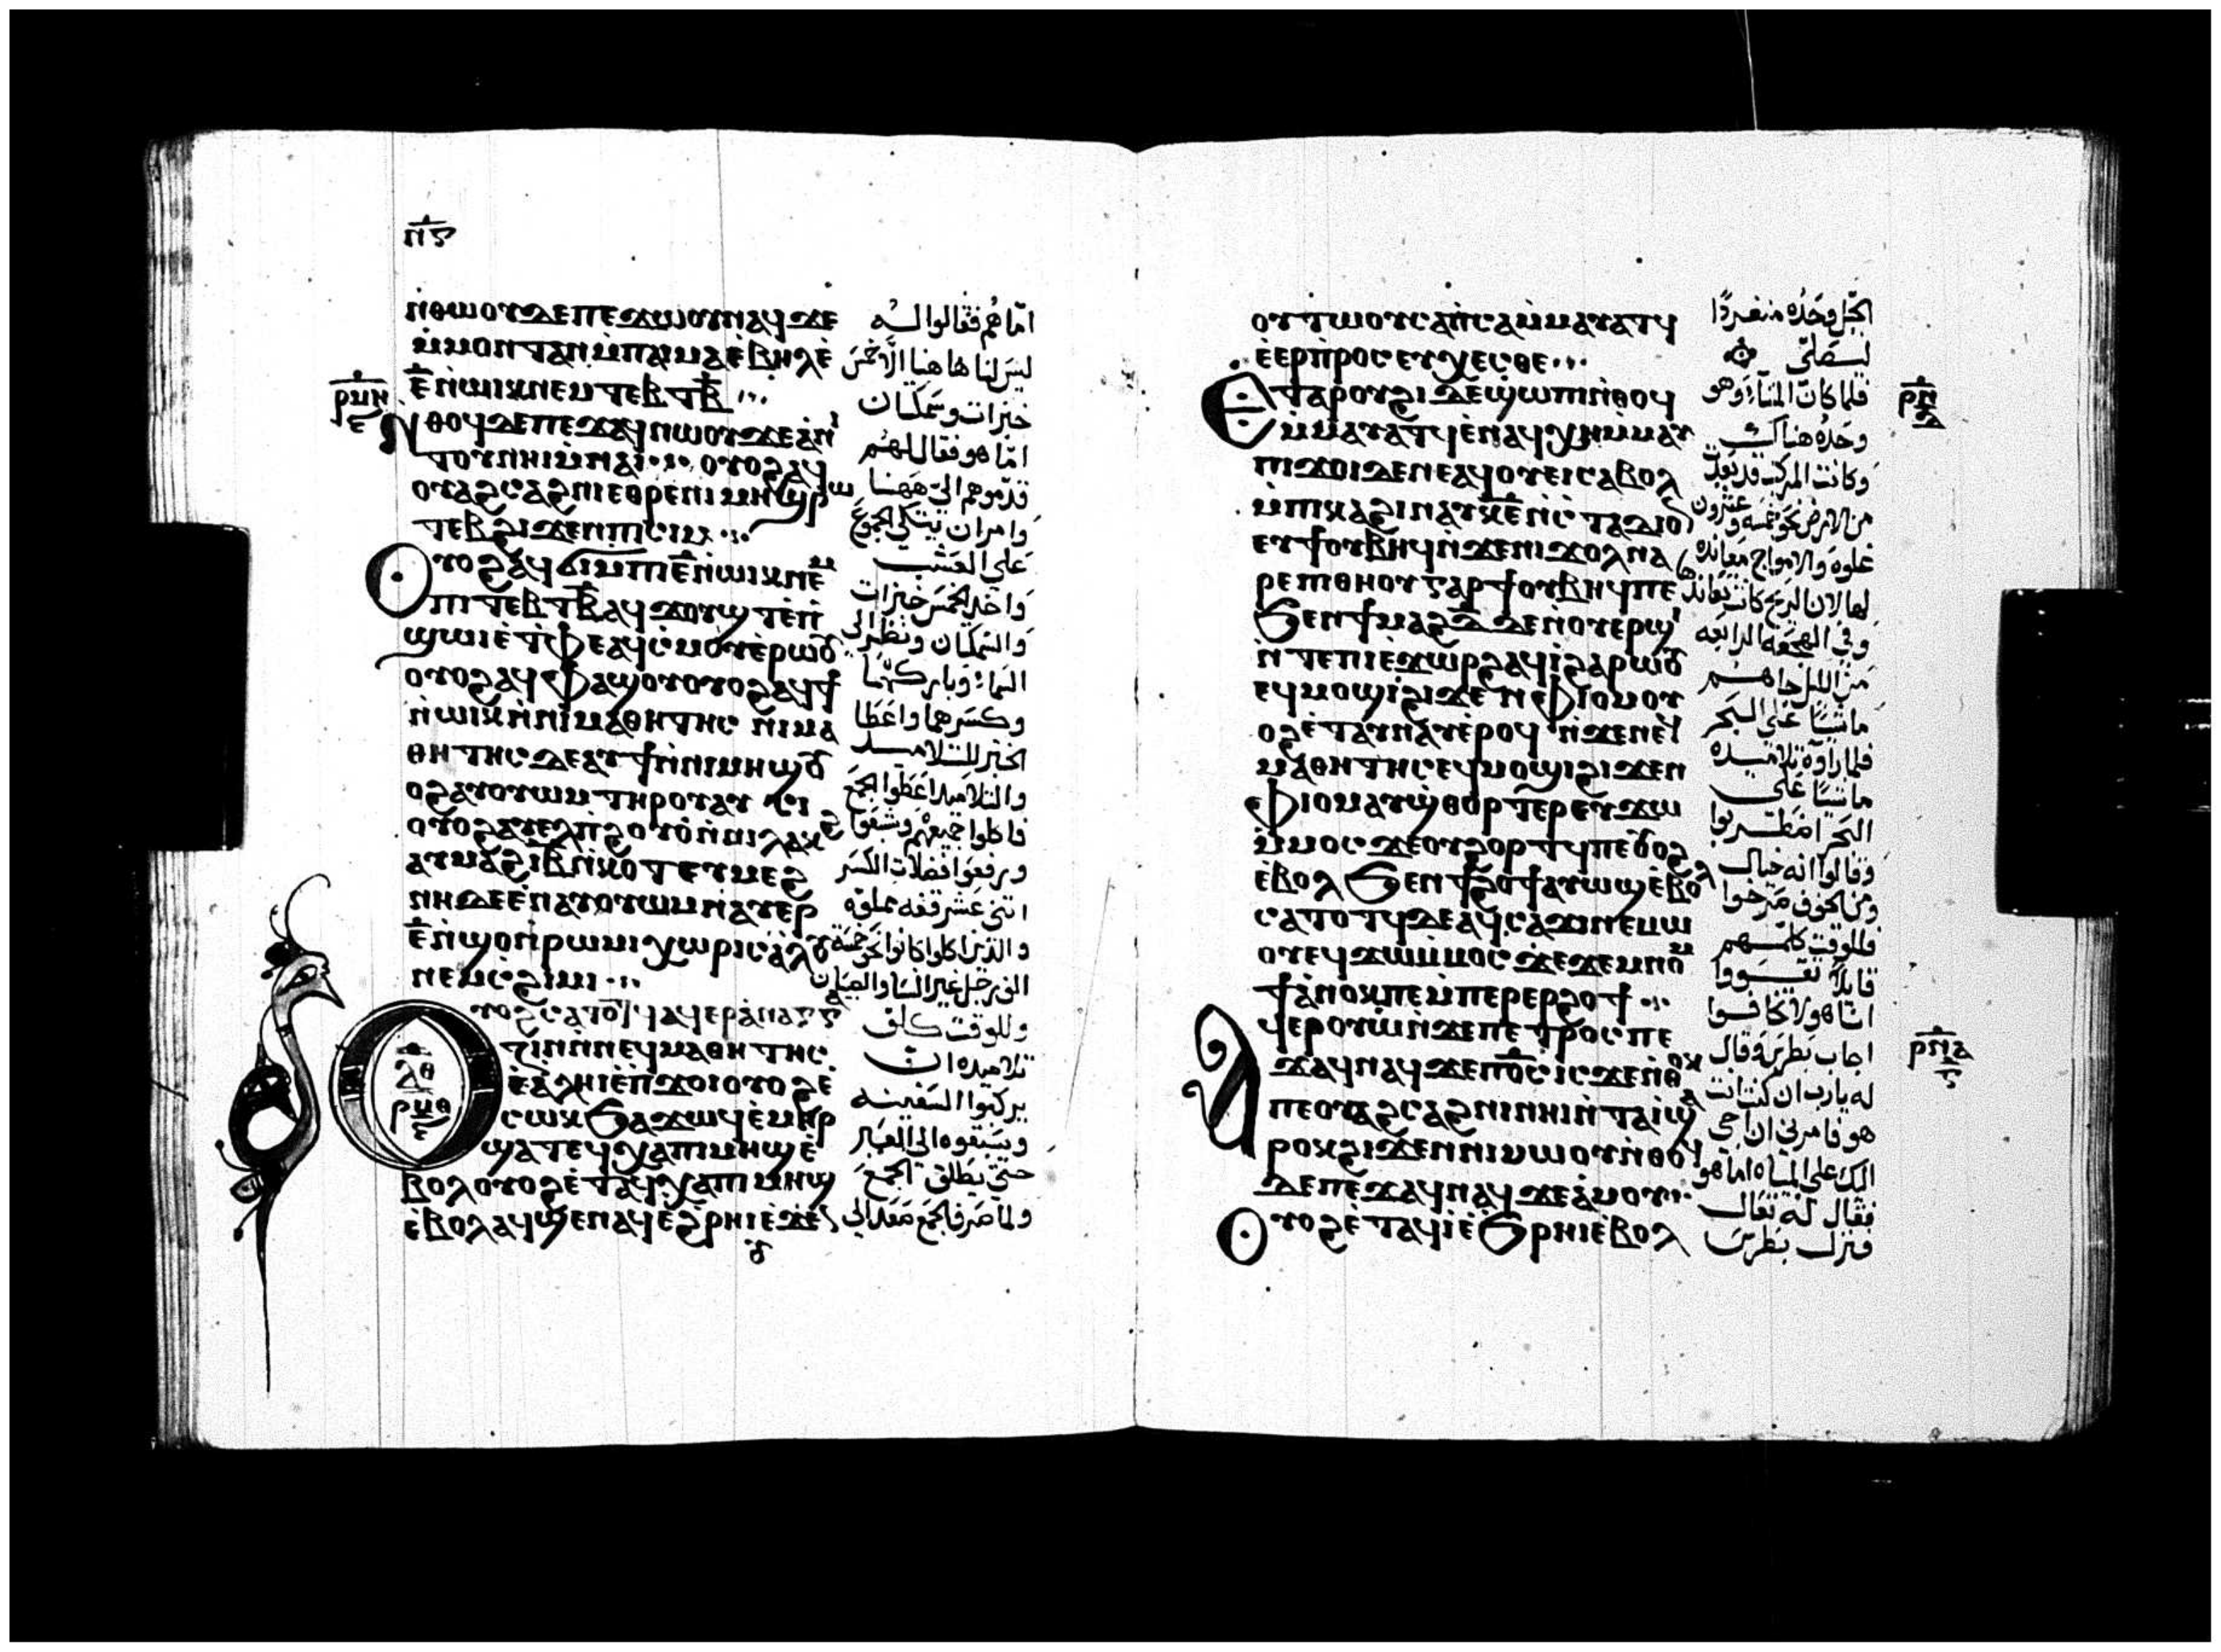 ⲡ̅ⲋ̅
ⲛ̇ⲑⲱⲟⲩⲇⲉⲡⲉϫⲱⲟⲩⲛⲁϥϫⲉ
ⲙ̇ⲙⲟⲛⲧⲁⲛⲙ̇ⲡⲁⲓⲙⲁⲉ̇ⲃⲏⲗⲉ̇
ⲉ̅ⲛ̇ⲱⲓⲕⲛⲉⲙⲧⲉⲃⲧⲃ̅
ⲣⲙⲏ
ⲉ
ⲛ̇ⲑⲟϥⲇⲉⲡⲉϫⲁϥⲛⲱⲟⲩϫⲉⲁⲛⲓ
ⲧⲟⲩⲛⲏⲓⲙ̇ⲛⲁⲓ ⲟⲩⲟϩⲁϥ
ⲟⲩⲁϩⲥⲁϩⲛⲓⲉⲑⲣⲉⲡⲓⲙⲏϣⲣⲱ
ⲧⲉⲃϩⲓϫⲉⲛⲡⲓⲥⲓⲙ
ⲟⲩⲟϩⲁϥϭⲓⲙ̇ⲡⲓⲉ̅ⲛ̇ⲱⲓⲕⲛⲉⲙ
ⲡⲓⲧⲉⲃⲧⲃ̅ⲁϥϫⲟⲩϣⲧⲉ̇ⲡ
ϣⲱⲓⲉ̇ⲧ̇ⲫⲉⲁϥⲥ̇ⲙⲟⲩⲉ̇ⲣⲱⲟⲩ
ⲟⲩⲟϩⲁϥⲫⲁϣⲟⲩⲟⲩⲟϩⲁϥϯ
ⲛ̇ⲱⲓⲕⲛ̇ⲛⲓⲙⲁⲑⲏⲧⲏⲥ ⲛⲓⲙⲁ
ⲑⲏⲧⲏⲥⲇⲉⲁⲩϯⲛ̇ⲛⲓⲙⲏϣⲟⲩ
ⲟϩⲁⲩⲟⲩⲱⲙⲧⲏⲣⲟⲩⲁⲩⲥⲓ
ⲟⲩⲟϩⲁⲩⲉⲗⲡ̇ϩⲟⲩⲟ̇ⲛ̇ⲛⲓⲗⲁⲕϩ
ⲁⲩⲙⲁϩⲓⲃ̅ⲛ̇ⲕⲟⲧⲉⲩⲙⲉϩ
ⲛⲏⲇⲉⲉ̇ⲛⲁⲩⲟⲩⲱⲙⲛⲁⲩⲉⲣ
ⲉ̅ⲛ̇ϣⲟⲛ̇ⲣⲱⲙⲓⲭⲱⲣⲓⲥⲁ̇ⲗⲟⲩ
ⲛⲉⲙⲥϩⲓⲙⲓ
ⲗⲑ
ⲣⲙⲑ
ⲉ
ⲟⲩⲟϩⲥⲁⲧⲟⲧϥⲁϥⲉⲣⲁⲛⲁⲅⲅ
ⲍⲓⲛ̇ⲛⲉϥⲙⲁⲑⲏⲧⲏⲥ
ⲉ̇ⲁ̇ⲗⲏⲓⲉ̇ⲡ̇ϫⲟⲓⲟⲩⲟϩⲉ̇
ⲥⲱⲕϧⲁϫⲱϥⲉ̇ⲙⲏⲣ
ϣⲁⲧⲉϥⲭⲁⲡⲓⲙⲏϣⲉ̇
ⲃⲟⲗⲟⲩⲟϩⲉ̇ⲧⲁϥⲭⲁⲡⲓⲙⲏϣ
ⲉ̇ⲃⲟⲗⲁϥϣⲉⲛⲁϥⲉ̇ϩ̇ⲣⲏⲓⲉ̇ϫⲉⲛ
امّا هُم فقالوا لـه
ليسَ لنا هاهنا الَّا خمسَ
خبزات وسَمكتان
امّا هو فقال لهم
قدّموهم اليَّ هَهنا
وامر ان يتكي الجموع
عَلي العشب
وَاخد الخمسَ خبزات
وَالسَمكتان ونظر الى
السَماء وباركهُما
وكسَرهما واعَطا
الخبز للتلاميد
والتلاميد اعَطوا الجمَع
فاكلوا جميعُهم وشبَعوا
ورفعوا فضلات الكسَر
اتنى عَشر قفه مملوه
والذين اكلوا كانوا نحوَ خمسَة
الف رجل غير النسَا والصبيان
وللوقت كلف
تلاميده ان
يركبوا السَفينه
ويسَبقوه الي العَبر
حتي يطلق الجمَع
ولما صَرف الجمَع صَعد الي
ⲟⲩⲧⲱⲟⲩⲥⲁⲡ̇ⲥⲁⲙ̇ⲙⲁⲩⲁⲧϥ
ⲉ̇ⲉⲣⲡ̇ⲣⲟⲥⲉⲩⲭⲉⲥⲑⲉ
ⲉⲧⲁⲣⲟⲩϩⲓⲇⲉϣⲱⲡⲓⲛ̇ⲑⲟϥ
ⲙ̇ⲙⲁⲩⲁⲧϥⲉ̇ⲛⲁϥⲭⲏⲙ̇ⲙⲁⲩ
ⲡⲓϫⲟⲓⲇⲉⲛⲉⲁϥⲟⲩⲉⲓⲥⲁⲃⲟⲗ
ⲙ̇ⲡⲓⲕⲁϩⲓⲛⲁⲩⲕ̅ⲉ̅ⲛ̇ⲥ̇ⲧⲁⲇⲓⲟⲛ
ⲉⲩϯⲟⲩⲃⲏϥⲛ̇ϫⲉⲛⲓϫⲟⲗⲛⲁ
ⲣⲉⲡⲓⲑⲏⲟⲩⲅⲁⲣϯⲟⲩⲃⲏϥⲡⲉ
ϧⲉⲛϯⲙⲁϩⲇ̅ⲇⲉⲛ̇ⲟⲩⲉⲣϣⲓ
ⲛ̇ⲧⲉⲡⲓⲉ̇ϫⲱⲣϩⲁϥⲓ̇ϩⲁⲣⲱⲟⲩ
ⲉϥⲙⲟϣⲓϩⲓϫⲉⲛⲫⲓⲟⲙⲟⲩ
ⲟϩⲉ̇ⲧⲁⲩⲛⲁⲩⲉ̇ⲣⲟϥⲛ̇ϫⲉⲛⲉϥ
ⲙⲁⲑⲏⲧⲏⲥⲉϥⲙⲟϣⲓϩⲓϫⲉⲛ
ⲫⲓⲟⲙⲁⲩϣ̇ⲑⲟⲣⲧⲉⲣⲉⲩϫⲱ
ⲙ̇ⲙⲟⲥϫⲉⲟⲩϩⲟⲣⲧϥⲡⲉⲟⲩⲟϩ
ⲉ̇ⲃⲟⲗϧⲉⲛϯϩⲟϯⲁⲩⲱϣⲉ̇ⲃⲟⲗ
ⲥⲁⲧⲟⲧϥⲇⲉⲁϥⲥⲁϫⲓⲛⲉⲙⲱ
ⲟⲩⲉϥϫⲱⲙ̇ⲙⲟⲥϫⲉϫⲉⲙⲛⲟⲙ
ϯⲁ̇ⲛⲟⲕⲡⲉⲙ̇ⲡⲉⲣⲉⲣϩⲟϯ
ⲁϥⲉⲣⲟⲩⲱ̇ⲛ̇ϫⲉⲡⲉⲧⲣⲟⲥⲡⲉ
ϫⲁϥⲛⲁϥϫⲉⲡ̅ⲟ̅ⲥ̅ⲓⲥϫⲉⲛ̇ⲑⲟⲕ
ⲡⲉⲟⲩⲁϩⲥⲁϩⲛⲓⲛⲏⲓⲛ̇ⲧⲁⲓ̇ϣⲁ
ⲣⲟⲕϩⲓϫⲉⲛⲛⲓⲙⲱⲟⲩⲛ̇ⲑⲟϥ
ⲇⲉⲡⲉϫⲁϥⲛⲁϥϫⲉⲁ̇ⲙⲟⲩ
ⲟⲩⲟϩⲉ̇ⲧⲁϥⲓⲉ̇ϧⲣⲏⲓⲉ̇ⲃⲟⲗ
الجبَل وحَدُه منفردًا
ليصَلّي
فلما كان المسَاء وَهو
وحَدُه هناك
وَكانت المركب قد بَعدت
من الارض نحوَ خمسَه وعشرون
غلوه وَالامواج مَعانده
لها لان الريح كانت تعَاندها
وفي الهجعَه الرابعَه
من الليل جاهم
ماشيًا عَلي البَحر
فلما راوَه تلاميده
ماشيًا عَلي
البَحر اضطربوا
وَقالوا انه خيال
ومن الخوف صَرخوا
فللوقت كلمهم
قايلًا تقَووا
انا هو لا تخافوا
اجاب بَطرسَ وقال
له يارب ان كنت انت
هو فامرني ان اجي
اليك علي المياه اما هو
فقال له تعَال
فنزل بَطرسَ
ⲣⲛ
ⲇ
ⲣⲛⲁ
ⲋ